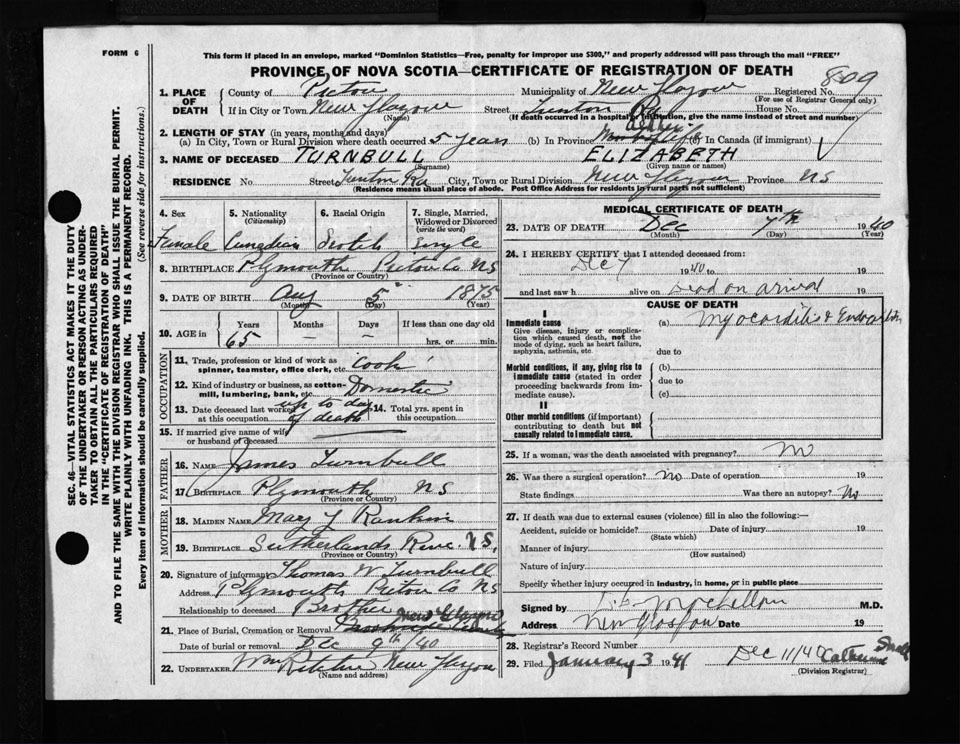 FORM 6
This form if placed in an envelope, marked "Dominion Statistics—Free, penalty for improper use $300," and properly addressed will pass through the mail "FREE"
PROVINCE OF NOVA SCOTIA—CERTIFICATE OF REGISTRATION OF DEATH
809
1. PLACE OF DEATH County of Pictou Municipality of New Glasgow Registered No.
(For use of Registrar General only)
If in City or Town New Glasgow Street House No.
(Name) (If death occurred in a hospital or institution, give the name instead of street and number)
2. LENGTH OF STAY (in years, months and days)
(a) In City, Town or Rural Division where death occurred 5 years (b) In Province (c) In Canada (if immigrant)
3. NAME OF DECEASED TURNBULL ELIZABETH
(Surname) (Given name or names)
RESIDENCE No. Street City, Town or Rural Division New Glasgow Province NS
(Residence means usual place of abode. Post Office Address for residents in rural parts not sufficient)
4. Sex 5. Nationality (Citizenship) 6. Racial Origin 7. Single, Married, Widowed or Divorced (write the word)
Female Canadian Scotch Single
8. BIRTHPLACE Plymouth Pictou Co NS
(Province or Country)
9. DATE OF BIRTH Aug 5 1875
(Month) (Day) (Year)
10. AGE in Years Months Days If less than one day
65 — — hrs. or min.
OCCUPATION
11. Trade, profession or kind of work as spinner, teamster, office clerk, etc. Cook
12. Kind of industry or business, as cotton-mill, lumbering, bank, etc. Domestic
13. Date deceased last worked at this occupation up to day of death 14. Total yrs. spent in this occupation
15. If married give name of wife or husband of deceased
FATHER
16. NAME James Turnbull
17. BIRTHPLACE Plymouth NS
(Province or Country)
MOTHER
18. MAIDEN NAME Mary Rankin
19. BIRTHPLACE Sutherlands River NS,
(Province or Country)
20. Signature of informant Thomas W Turnbull
Address Plymouth Pictou Co NS
Relationship to deceased Brother
21. Place of Burial, Cremation or Removal
Date of burial or removal Dec 9th/40
22. UNDERTAKER New Glasgow
(Name and address)
MEDICAL CERTIFICATE OF DEATH
23. DATE OF DEATH Dec 7th 1940
(Month) (Day) (Year)
24. I HEREBY CERTIFY that I attended deceased from:
Dec 7 1940 to 19
and last saw h alive on Dead on arrival 19
CAUSE OF DEATH
I
Immediate cause
Give disease, injury or complication which caused death, not the mode of dying, such as heart failure, asphyxia, asthenia, etc.
(a) Myocarditis & Endocarditis
due to
Morbid conditions, if any, giving rise to immediate cause (stated in order proceeding backwards from immediate cause).
(b)
due to
(c)
II
Other morbid conditions (if important) contributing to death but not causally related to immediate cause.
25. If a woman, was the death associated with pregnancy? No
26. Was there a surgical operation? No Date of operation 19
State findings Was there an autopsy? No
27. If death was due to external causes (violence) fill in also the following:—
Accident, suicide or homicide? Date of injury 19
(State which)
Manner of injury
(How sustained)
Nature of injury
Specify whether injury occurred in industry, in home, or in public place
Signed by M.D.
Address New Glasgow Date 19
28. Registrar's Record Number
29. Filed January 3 1941 Dec 11/40
(Division Registrar)
SEC. 46—VITAL STATISTICS ACT MAKES IT THE DUTY
OF THE UNDERTAKER OR PERSON ACTING AS UNDERTAKER TO OBTAIN ALL THE PARTICULARS REQUIRED
IN THE "CERTIFICATE OF REGISTRATION OF DEATH"
AND TO FILE THE SAME WITH THE DIVISION REGISTRAR WHO SHALL ISSUE THE BURIAL PERMIT.
WRITE PLAINLY WITH UNFADING INK. THIS IS A PERMANENT RECORD.
Every item of information should be carefully supplied. (See reverse side for instructions.)